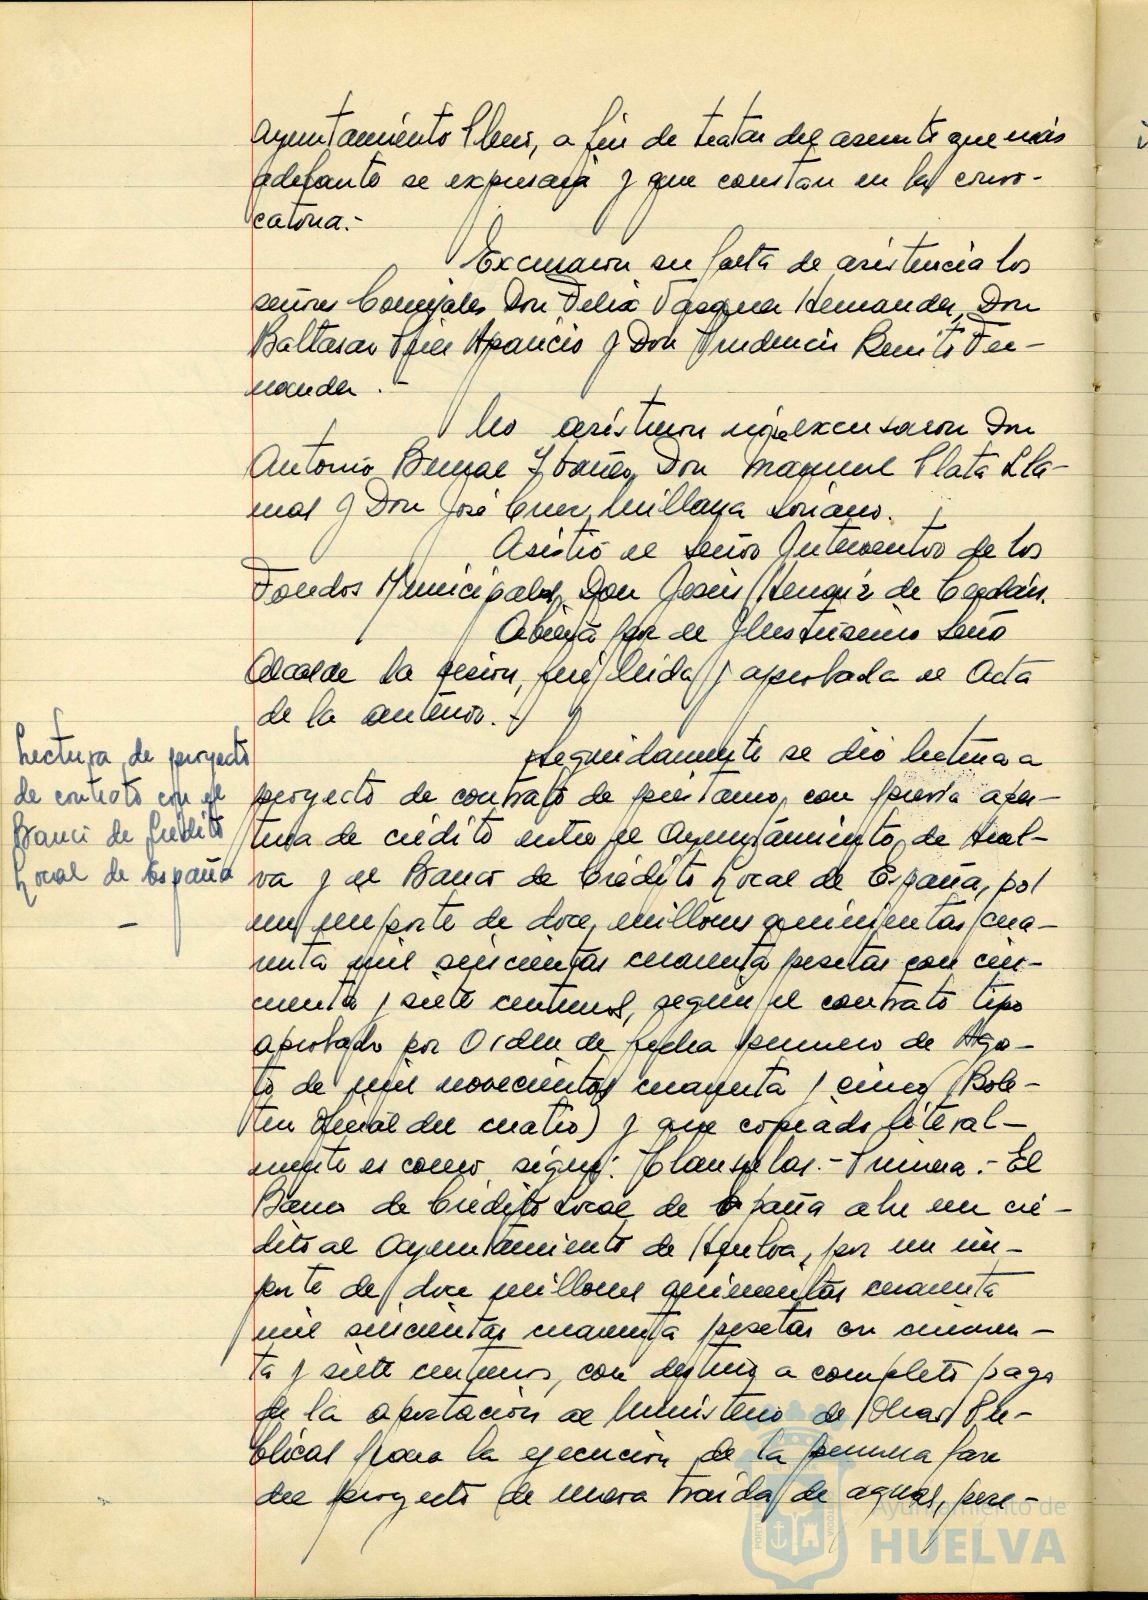 Ayuntamiento Pleno, a fin de tratar del asunto que más
adelante se expresará y que constan en la convo-
catoria.-
Excusaron su falta de asistencia los
señores Concejales Don Felix Vazquez Hernandez, Don
Baltasar Frier Aparicio y Don Prudencio Benito Fer-
nandez.-
No asistieron ni se excusaron Don
Antonio Bernal Ybañez, Don Manuel Plata Lla-
mas y Don José Cruz Millana Soriano.
Asistió el señor Interventor de los
Fondos Municipales, Don Jesús de Cerdán.
Abierta por el Ilustrisimo Señor
Alcalde la sesión, fué leida y aprobada el Acta
de la anterior.-
Lectura de proyecto
de contrato con el
Banco de Crédito
Local de España
Seguidamente se dió lectura a
proyecto de contrato de préstamo, con previa aper-
tura de crédito entre el Ayuntamiento de Huel-
va y el Banco de Crédito Local de España, por
un importe de doce millones quinientas cua-
renta mil seiscientas cuarenta pesetas con cin-
cuenta y siete centimos, según el contrato tipo
aprobado por Orden de fecha primero de Agos-
to de mil novecientos cuarenta y cinco (Bole-
tin Oficial del cuatro) y que copiado literal-
mente es como sigue: Clausulas.- Primera.- El
Banco de Crédito Local de España abre un cré-
dito al Ayuntamiento de Huelva, por un im-
porte de doce millones quinientas cuarenta
mil seiscientas cuarenta pesetas con cincuen-
ta y siete centimos, con destino a completo pago
de la aportación al Ministerio de Obras Pú-
blicas para la ejecución de la primera fase
del proyecto de nueva traida de aguas, pese-
Ayuntamiento de
HUELVA